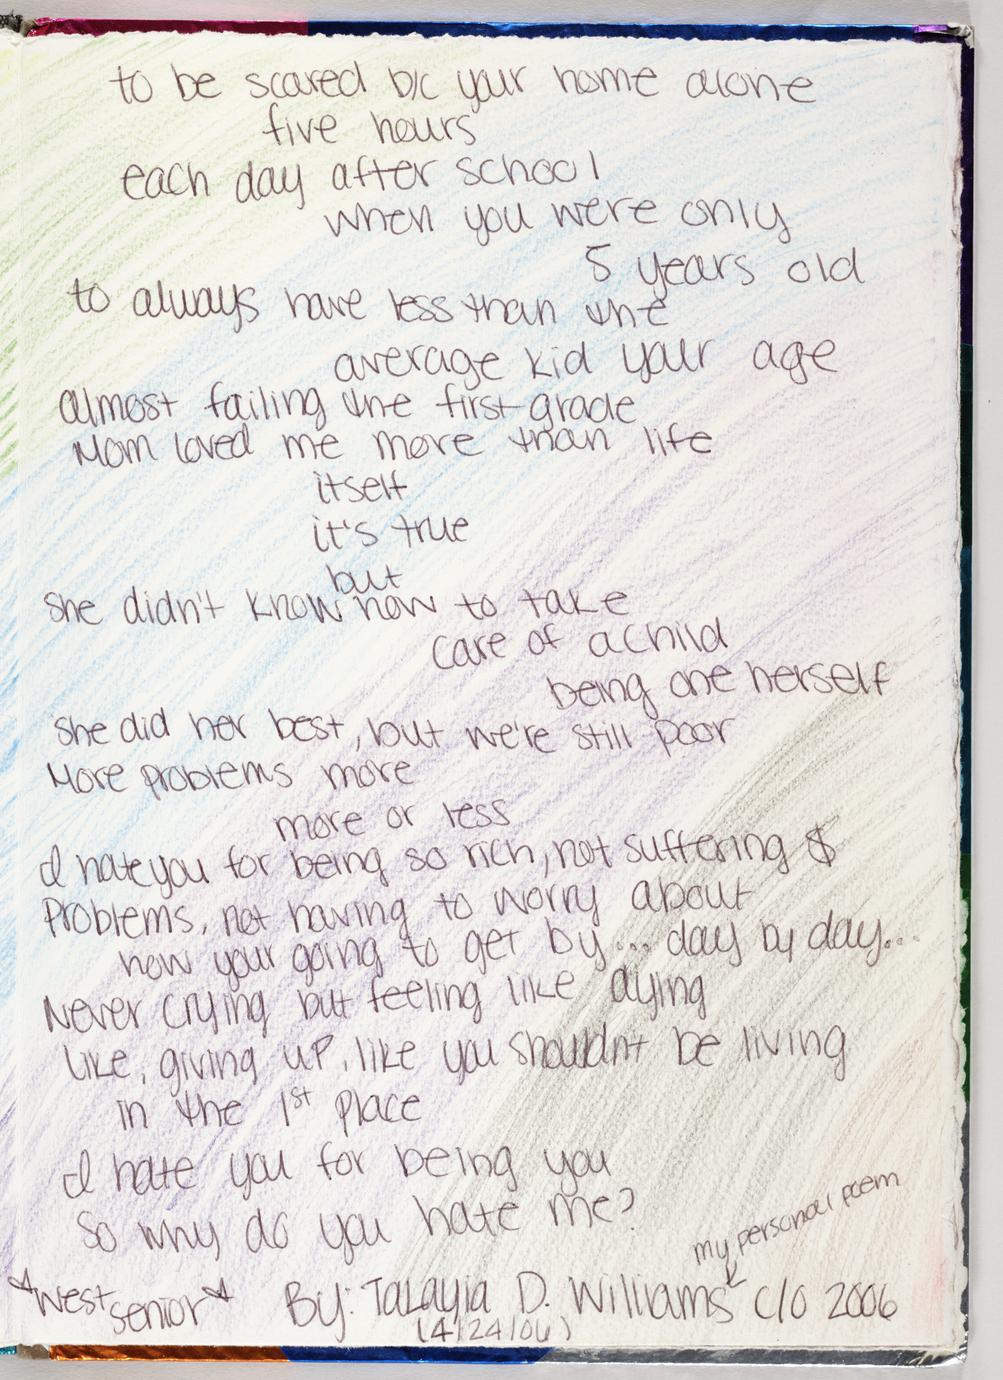 to be scared b/c your home alone
five hours
each day after school
when you were only
5 years old
to always have less than the
average kid your age
almost failing the first grade
Mom loved me more than life
itself
it's true
but
she didn't know how to take
care of a child
being one herself
She did her best, but we're still poor
More problems more
more or less
I hate you for being so rich, not suffering $
Problems, not having to worry about
how your going to get by... day by day...
Never crying but feeling like dying
Like, giving up, like you shouldn't be living
in the 1st place
I hate you for being you
So why do you hate me?
my personal poem
*West senior* By: Talayia D. Williams c/o 2006
(4/24/06)